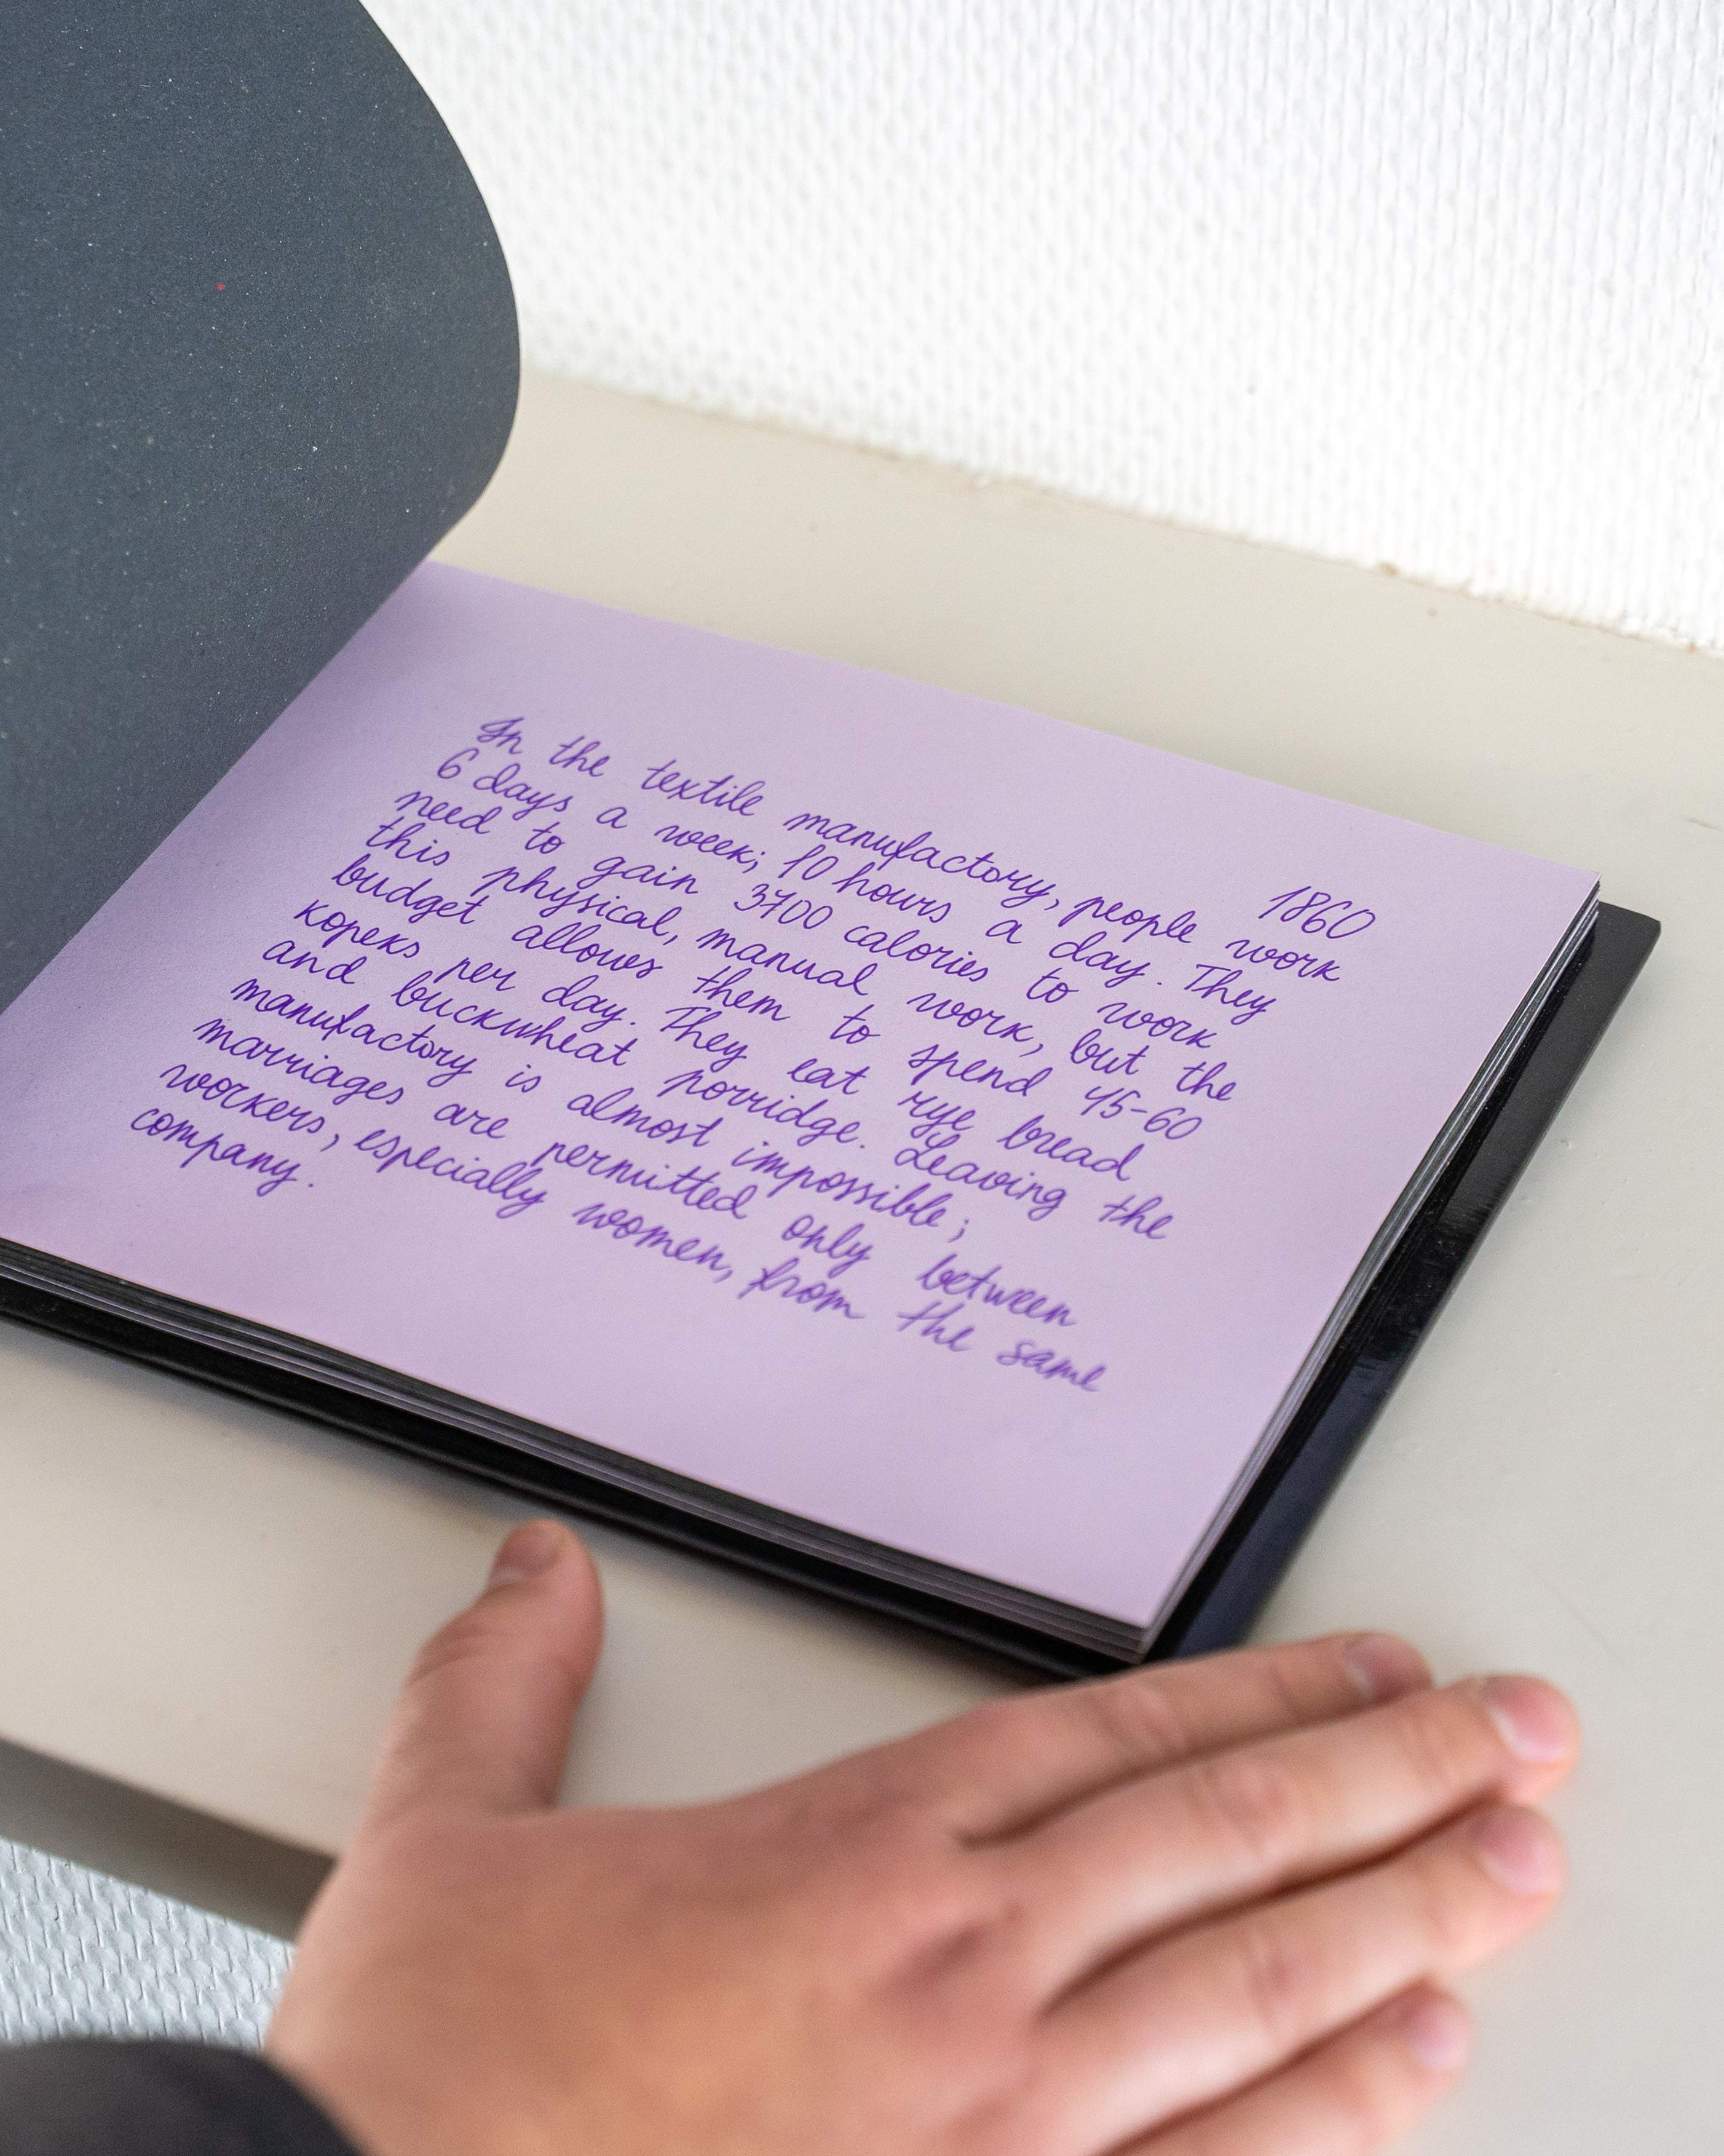 1860
In the textile manufactory, people work
6 days a week; 10 hours a day. They
need to gain 3700 calories to work
this physical, manual work, but the
budget allows them to spend 45-60
kopeks per day. They eat rye bread
and buckwheat porridge. Leaving the
manufactory is almost impossible;
marriages are permitted only between
workers, especially women, from the same
company.